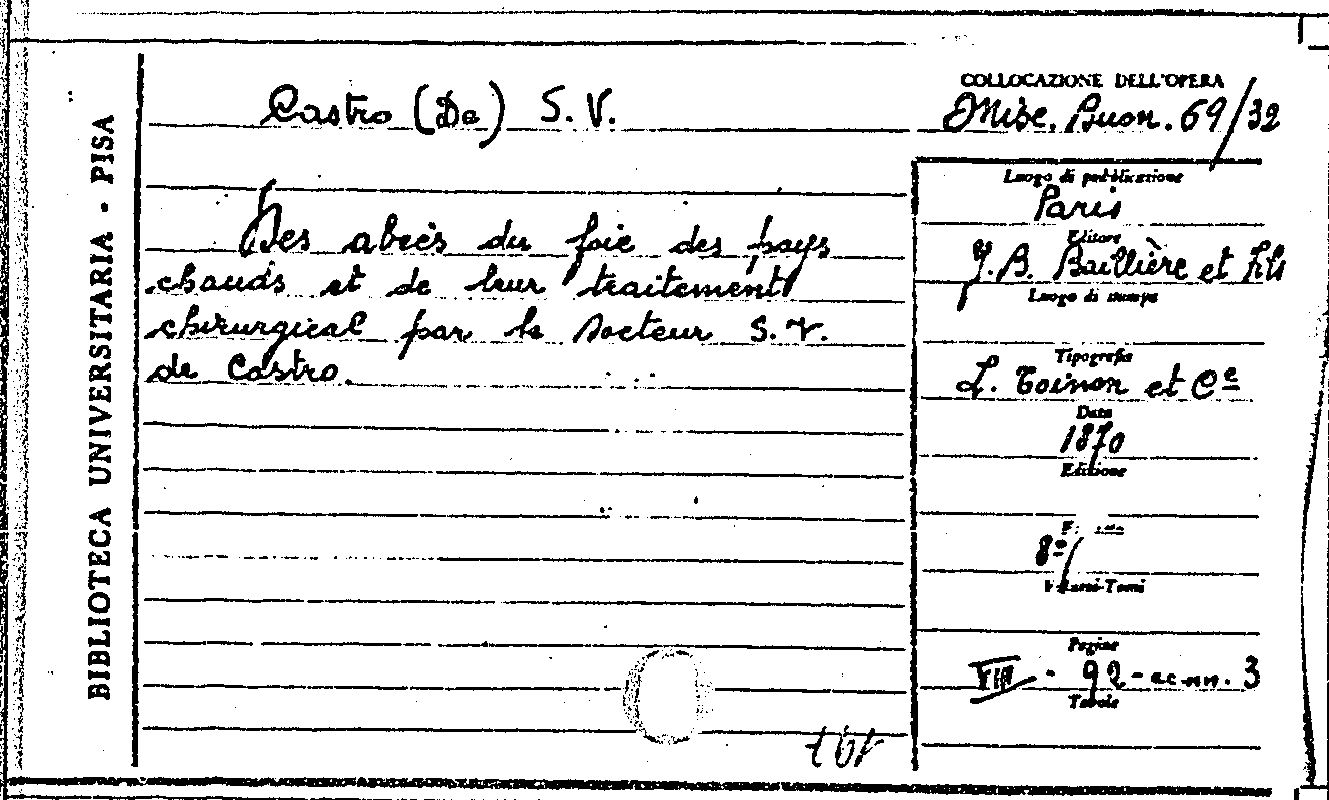 BIBLIOTECA UNIVERSITARIA - PISA
Castro (De) S. V.
COLLOCAZIONE DELL'OPERA
Misc. Buon. 69/32
Des abcès du foie des pays
chauds et de leur traitement
chirurgical par le docteur S. V.
de Castro.
Luogo di pubblicazione
Paris
Editore
J. B. Baillière et Fils
Luogo di stampa
Tipografia
L. Toinon et Cᵉ
Data
1870
Edizione
8º/
Volumi-Tomi
Pagine
VIII - 92 - ac. nn. 3
Tavole